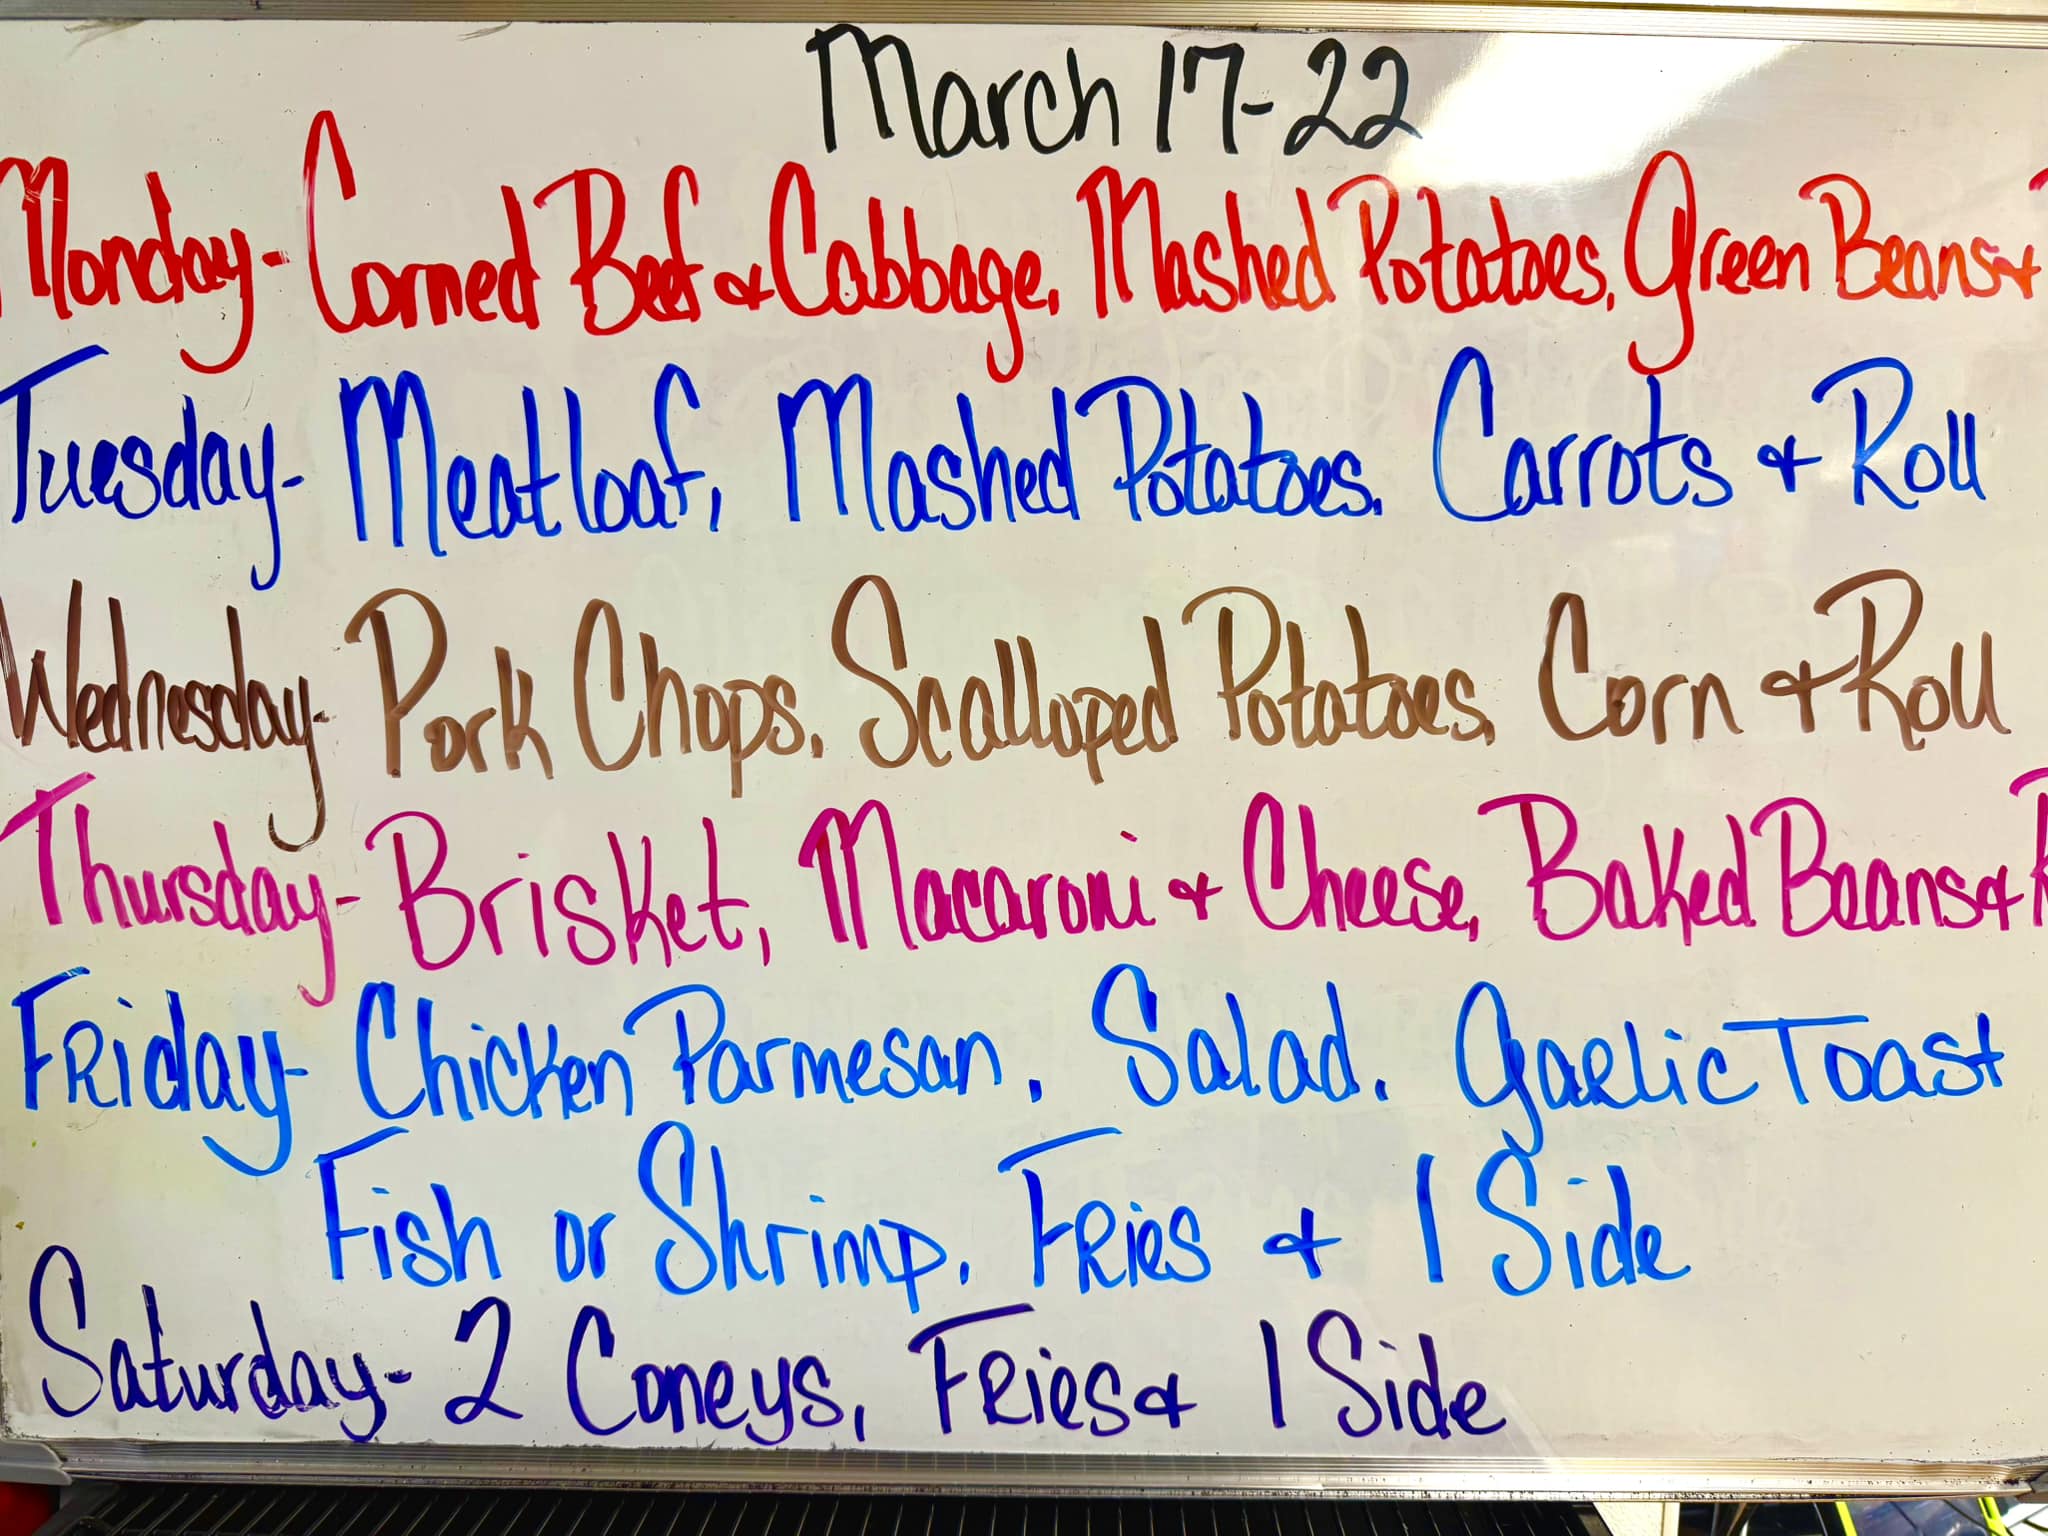 March 17-22
Monday- Corned Beef & Cabbage, Mashed Potatoes, Green Beans &
Tuesday- Meatloaf, Mashed Potatoes, Carrots & Roll
Wednesday- Pork Chops, Scalloped Potatoes, Corn & Roll
Thursday- Brisket, Macaroni & Cheese, Baked Beans &
Friday- Chicken Parmesan, Salad, Garlic Toast
Fish or Shrimp, Fries & 1 Side
Saturday- 2 Coneys, Fries & 1 Side